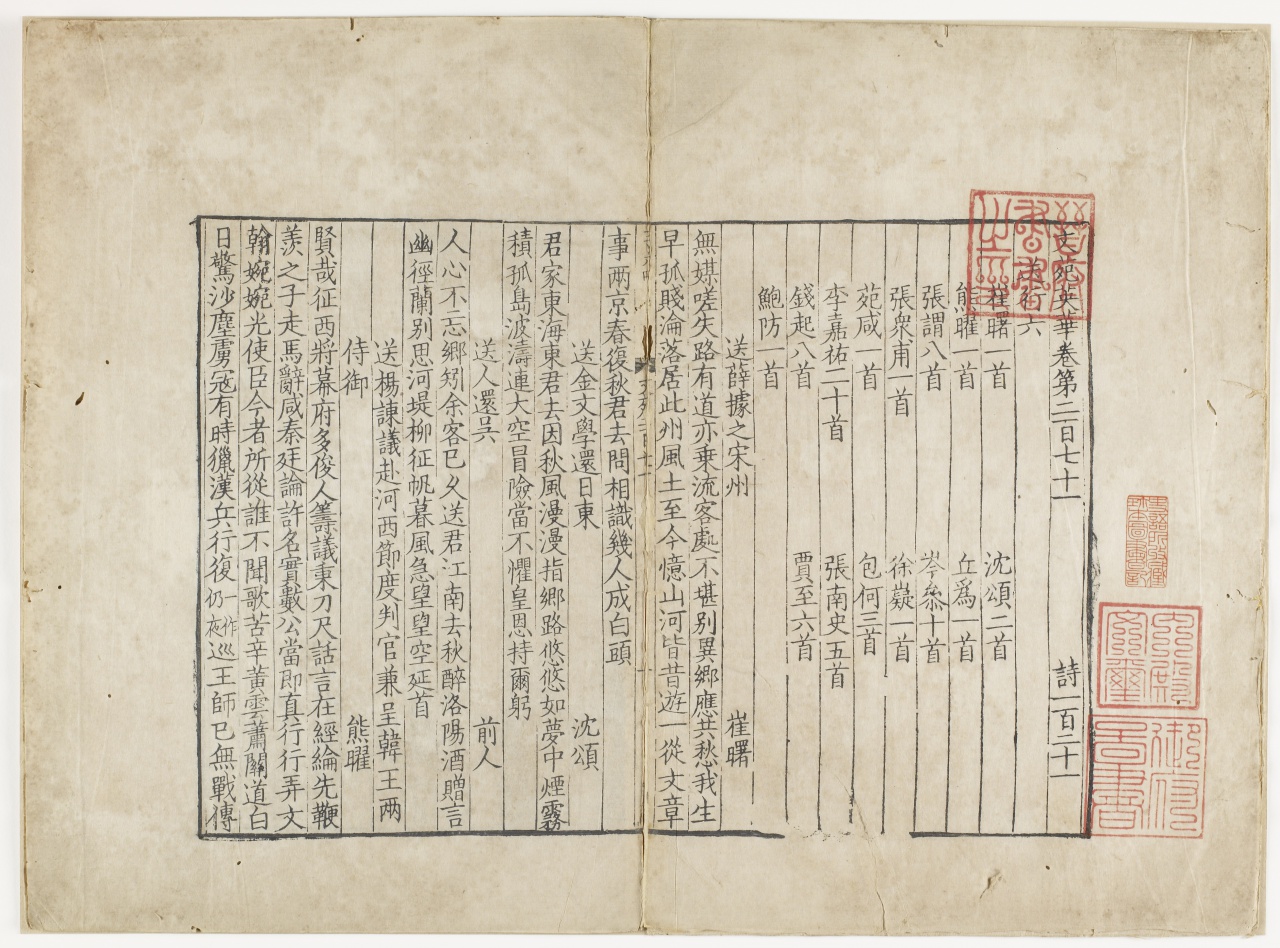 文苑英華卷第二百七十一　詩一百二十一
送行六
崔曙一首　沈頌二首
熊曜一首　丘為一首
張謂八首　岑參十首
張衆甫一首　徐嶷一首
苑咸一首　包何三首
李嘉祐二十首　張南史五首
錢起八首　賈至六首
鮑防一首
送薛據之宋州　崔曙
無媒嗟失路有道亦乘流客處不堪别異鄉應共愁我生
早孤賤淪落居此州風土至今憶山河皆昔遊一從文章
事兩京春復秋君去問相識幾人成白頭
送金文學還日東　沈頌
君家東海東君去因秋風漫漫指鄉路悠悠如夢中煙霧
積孤島波濤連大空冒險當不懼皇恩持爾躬
送人還吳　前人
人心不忘鄉矧余客已久送君江南去秋醉洛陽酒贈言
幽徑蘭别思河堤柳征帆暮風急望望空延首
送楊諫議赴河西節度判官兼呈韓王兩
侍御　熊曜
賢哉征西將幕府多俊人籌議秉刀尺話言在經綸先鞭
羨之子走馬辭咸秦廷論許名實數公當即真行行弄文
翰婉婉光使臣今者所從誰不聞歌苦辛黃雲蕭關道白
日驚沙塵虜寇有時獵漢兵行復一作仍夜巡王師已無戰傳
御府圖書